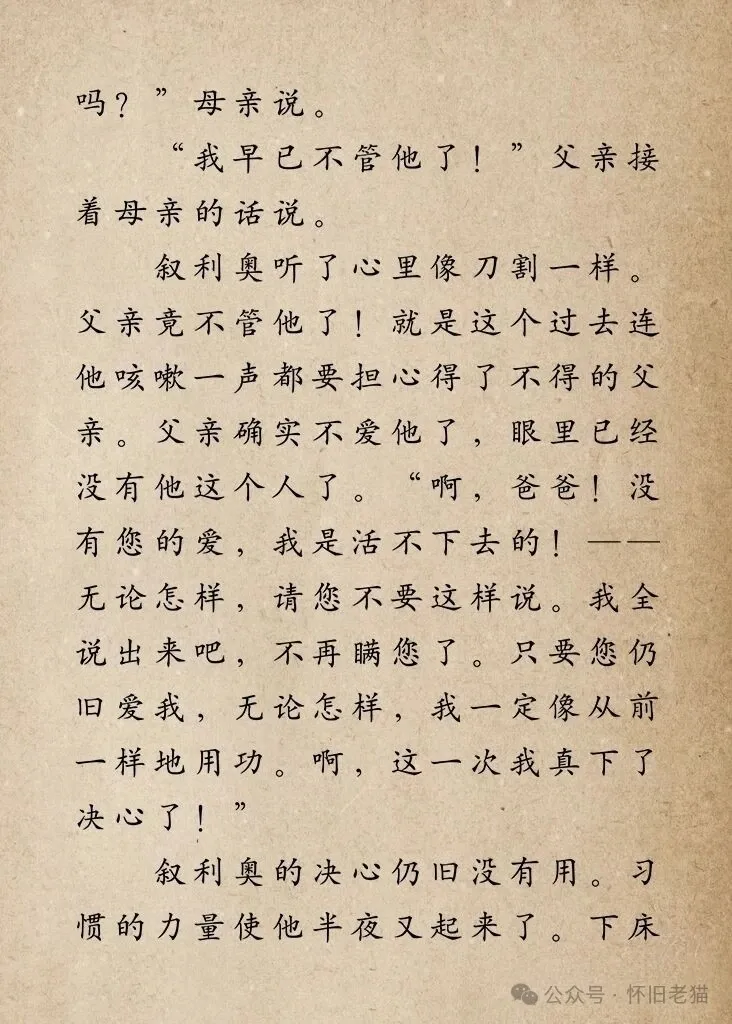 吗？”母亲说。
“我早已不管他了！”父亲接
着母亲的话说。
叙利奥听了心里像刀割一样。
父亲竟不管他了！就是这个过去连
他咳嗽一声都要担心得了不得的父
亲。父亲确实不爱他了，眼里已经
没有他这个人了。“啊，爸爸！没
有您的爱，我是活不下去的！——
无论怎样，请您不要这样说。我全
说出来吧，不再瞒您了。只要您仍
旧爱我，无论怎样，我一定像从前
一样地用功。啊，这一次我真下了
决心了！”
叙利奥的决心仍旧没有用。习
惯的力量使他半夜又起来了。下床
公众号·怀旧老猫